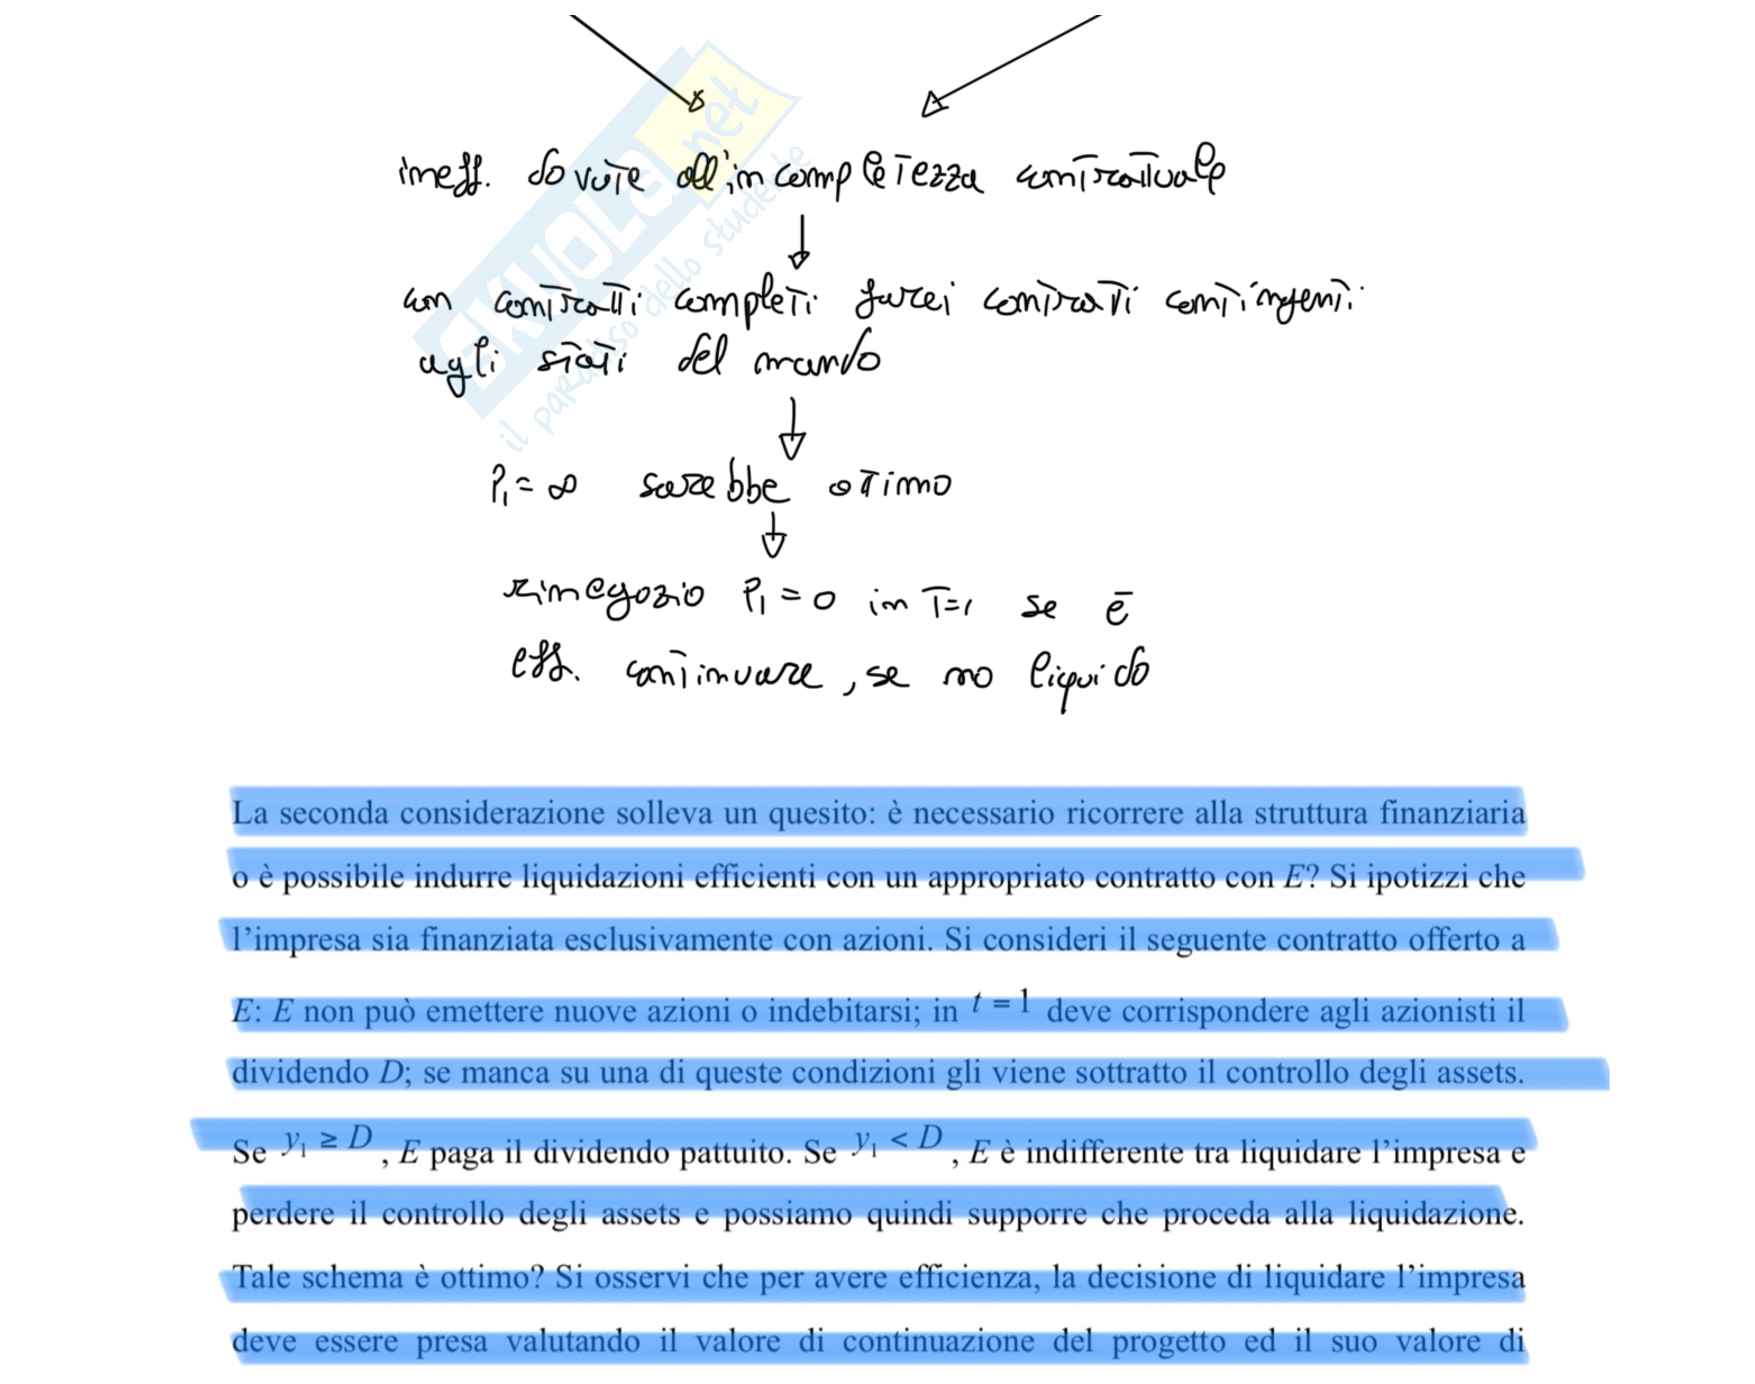 ineff. dovute all'incompletezza contrattuale
con contratti completi farei contratti contingenti
agli stati del mondo
P₁ = ∞ sarebbe ottimo
rinegozio P₁ = 0 in T=1 se è
eff. continuare, se no liquido
SKUOLA.net
il paradiso dello studente
La seconda considerazione solleva un quesito: è necessario ricorrere alla struttura finanziaria
o è possibile indurre liquidazioni efficienti con un appropriato contratto con E? Si ipotizzi che
l'impresa sia finanziata esclusivamente con azioni. Si consideri il seguente contratto offerto a
E: E non può emettere nuove azioni o indebitarsi; in t = 1 deve corrispondere agli azionisti il
dividendo D; se manca su una di queste condizioni gli viene sottratto il controllo degli assets.
Se y₁ ≥ D , E paga il dividendo pattuito. Se y₁ < D , E è indifferente tra liquidare l'impresa e
perdere il controllo degli assets e possiamo quindi supporre che proceda alla liquidazione.
Tale schema è ottimo? Si osservi che per avere efficienza, la decisione di liquidare l'impresa
deve essere presa valutando il valore di continuazione del progetto ed il suo valore di